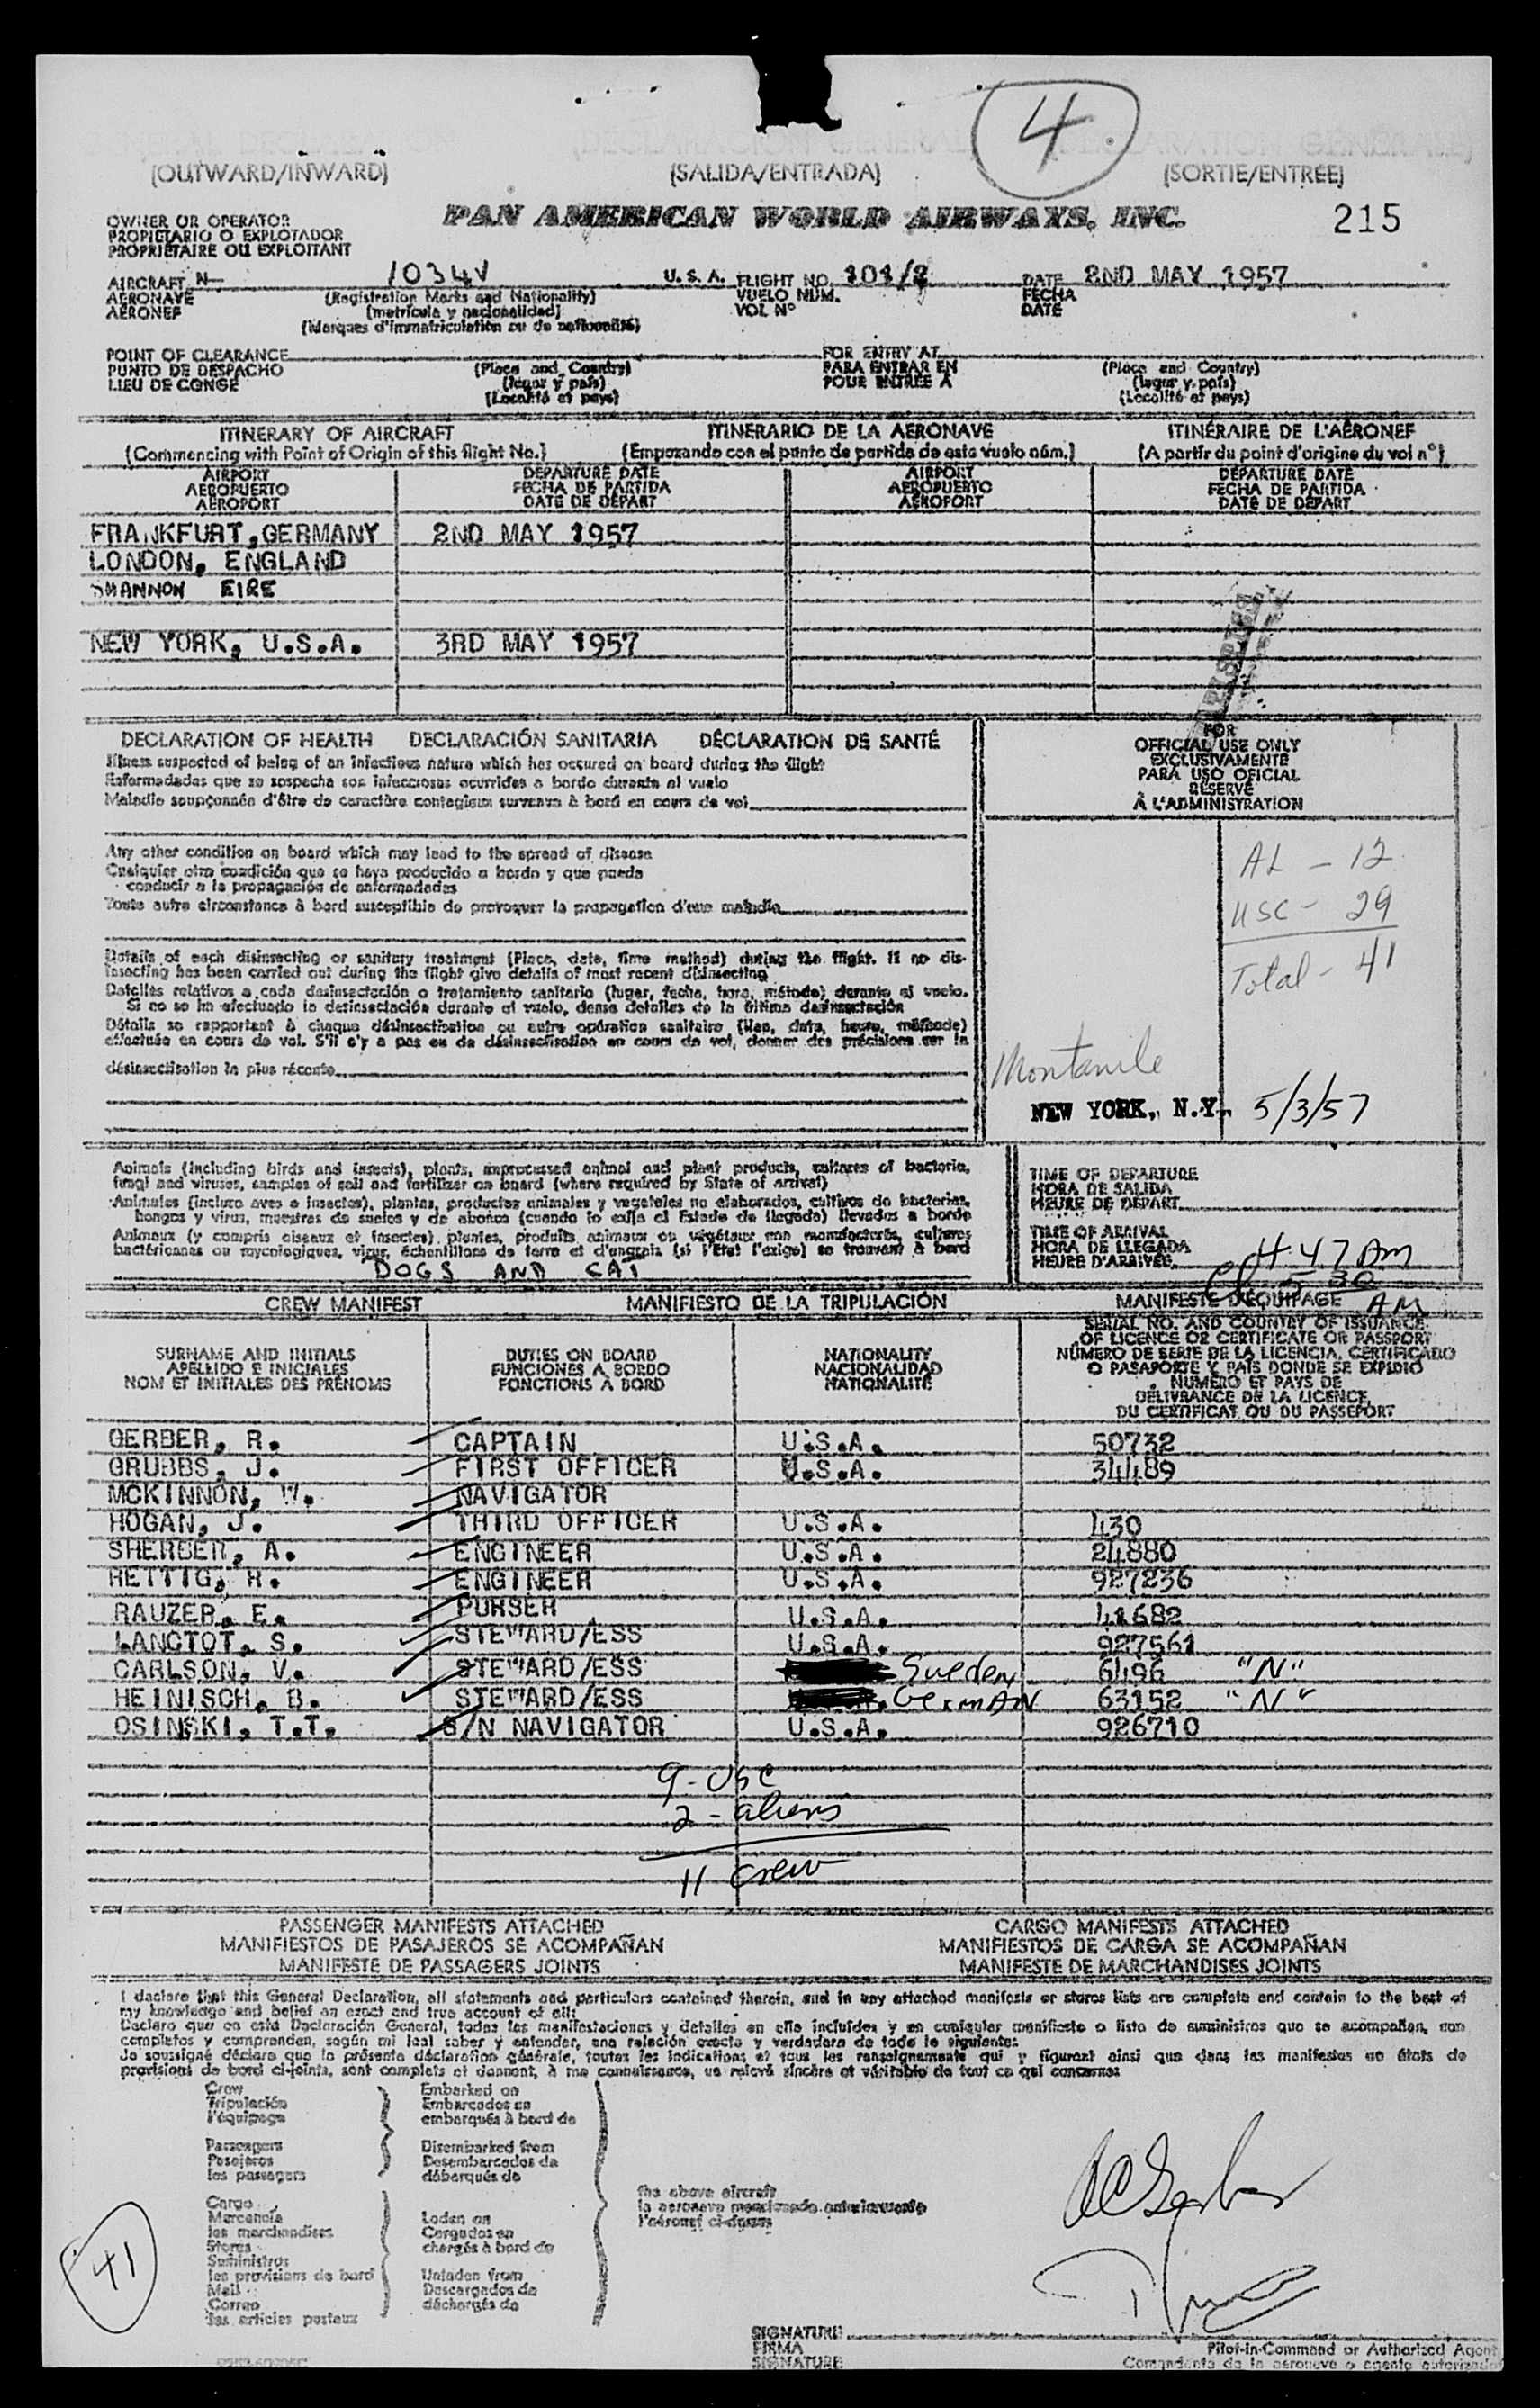 4
(OUTWARD/INWARD) (SALIDA/ENTRADA) (SORTIE/ENTREE)
PAN AMERICAN WORLD AIRWAYS, INC. 215
OWNER OR OPERATOR
PROPIETARIO O EXPLOTADOR
PROPRIÉTAIRE OU EXPLOITANT
AIRCRAFT N- 1034V U.S.A. FLIGHT NO. 101/2 DATE 2ND MAY 1957
AERONAVE (Registration Marks and Nationality) VUELO NUM. FECHA
AÉRONEF (matrícula y nacionalidad) VOL Nº DATE
(Marques d'immatriculation ou de nationalité)
POINT OF CLEARANCE FOR ENTRY AT
PUNTO DE DESPACHO (Place and Country) PARA ENTRAR EN (Place and Country)
LIEU DE CONGÉ (lugar y país) POUR ENTRÉE A (lugar y país)
(Localité et pays) (Localité et pays)
ITINERARY OF AIRCRAFT ITINERARIO DE LA AERONAVE ITINÉRAIRE DE L'AÉRONEF
(Commencing with Point of Origin of this flight No.) (Empezando con el punto de partida de este vuelo núm.) (A partir du point d'origine du vol nº)
AIRPORT DEPARTURE DATE AIRPORT DEPARTURE DATE
AEROPUERTO FECHA DE PARTIDA AEROPUERTO FECHA DE PARTIDA
AÉROPORT DATE DE DÉPART AÉROPORT DATE DE DÉPART
FRANKFURT, GERMANY 2ND MAY 1957
LONDON, ENGLAND
SHANNON EIRE
NEW YORK, U.S.A. 3RD MAY 1957
DECLARATION OF HEALTH DECLARACIÓN SANITARIA DÉCLARATION DE SANTÉ
Illness suspected of being of an infectious nature which has occured on board during the flight
Enfermedades que se sospecha son infecciosas ocurridas a bordo durante el vuelo
Maladie soupçonnée d'être de caractère contagieux survenue à bord en cours de vol
Any other condition on board which may lead to the spread of disease
Cualquier otra condición que se haya producido a bordo y que pueda
conducir a la propagación de enfermedades
Toute autre circonstance à bord susceptible de provoquer la propagation d'une maladie
Details of each disinsecting or sanitary treatment (Place, date, time method) during the flight. If no dis-
insecting has been carried out during the flight give details of most recent disinsecting
Detalles relativos a cada desinsectación o tratamiento sanitario (lugar, fecha, hora, método) durante el vuelo.
Si no se ha efectuado la desinsectación durante el vuelo, dense detalles de la última desinsectación
Détails se rapportant à chaque désinsectisation ou autre opération sanitaire (lieu, date, heure, méthode)
effectuée en cours de vol. S'il n'y a pas eu de désinsectisation en cours de vol, donner des précisions sur la
désinsectisation la plus récente
FOR
OFFICIAL USE ONLY
EXCLUSIVAMENTE
PARA USO OFICIAL
RÉSERVÉ
À L'ADMINISTRATION
AL - 12
USC - 29
Total - 41
NEW YORK, N.Y. 5/3/57
Animals (including birds and insects), plants, unprocessed animal and plant products, cultures of bacteria,
fungi and viruses, samples of soil and fertilizer on board (where required by State of arrival)
Animales (incluso aves e insectos), plantas, productos animales y vegetales no elaborados, cultivos de bacterias,
hongos y virus, muestras de suelos y de abonos (cuando lo exija el Estado de llegada) llevados a bordo
Animaux (y compris oiseaux et insectes), plantes, produits animaux ou végétaux non manufacturés, cultures
bactériennes ou mycologiques, virus, échantillons de terre et d'engrais (si l'État l'exige) se trouvant à bord
DOGS AND CAT
TIME OF DEPARTURE
HORA DE SALIDA
HEURE DE DÉPART
TIME OF ARRIVAL
HORA DE LLEGADA
HEURE D'ARRIVÉE 4:47 AM
5 30 AM
CREW MANIFEST MANIFIESTO DE LA TRIPULACIÓN MANIFESTE D'ÉQUIPAGE
SURNAME AND INITIALS DUTIES ON BOARD NATIONALITY SERIAL NO. AND COUNTRY OF ISSUANCE
APELLIDO E INICIALES FUNCIONES A BORDO NACIONALIDAD OF LICENCE OR CERTIFICATE OR PASSPORT
NOM ET INITIALES DES PRÉNOMS FONCTIONS À BORD NATIONALITÉ NÚMERO DE SERIE DE LA LICENCIA, CERTIFICADO
O PASAPORTE Y PAÍS DONDE SE EXPIDIÓ
NUMÉRO ET PAYS DE
DÉLIVRANCE DE LA LICENCE,
DU CERTIFICAT OU DU PASSEPORT
GERBER, R. CAPTAIN U.S.A. 50732
GRUBBS, J. FIRST OFFICER U.S.A. 34489
MCKINNON, W. NAVIGATOR
HOGAN, J. THIRD OFFICER U.S.A. 430
SHERBER, A. ENGINEER U.S.A. 24880
RETTIG, R. ENGINEER U.S.A. 927236
RAUZER, E. PURSER U.S.A. 41682
LANCTOT, S. STEWARD/ESS U.S.A. 927561
CARLSON, V. STEWARD/ESS Sweden 6496 "N"
HEINISCH, B. STEWARD/ESS GERMAN 63152 "N"
OSINSKI, T.T. S/N NAVIGATOR U.S.A. 926710
9 - USC
2 - aliens
11 crew
PASSENGER MANIFESTS ATTACHED CARGO MANIFESTS ATTACHED
MANIFIESTOS DE PASAJEROS SE ACOMPAÑAN MANIFIESTOS DE CARGA SE ACOMPAÑAN
MANIFESTE DE PASSAGERS JOINTS MANIFESTE DE MARCHANDISES JOINTS
I declare that this General Declaration, all statements and particulars contained therein, and in any attached manifests or stores lists are complete and contain to the best of
my knowledge and belief an exact and true account of all:
Declaro que en está Declaración General, todas las manifestaciones y detalles en ella incluídos y en cualquier manifiesto o lista de suministros que se acompañan, son
completos y comprenden, según mi leal saber y entender, una relación exacta y verdadera de todo lo siguiente:
Je soussigné déclare que la présente déclaration générale, toutes les indications et tous les renseignements qui y figurent ainsi que dans les manifestes ou états de
provisions de bord ci-joints, sont complets et donnent, à ma connaissance, un relevé sincère et véritable de tout ce qui concerne:
Crew Embarked on
Tripulación Embarcados en
l'équipage embarqués à bord de
Passengers Disembarked from
Pasajeros Desembarcados de
les passagers débarqués de
the above aircraft
la aeronave mencionada anteriormente
l'aéronef ci-dessus
Cargo
Mercancía Laden on
les marchandises Cargados en
Stores chargés à bord de
Suministros
les provisions de bord Unladen from
Mail Descargados de
Correo déchargés de
les articles postaux
41
SIGNATURE
FIRMA
SIGNATURE
Pilot-in-Command or Authorized Agent
Comandante de la aeronave o agente autorizado